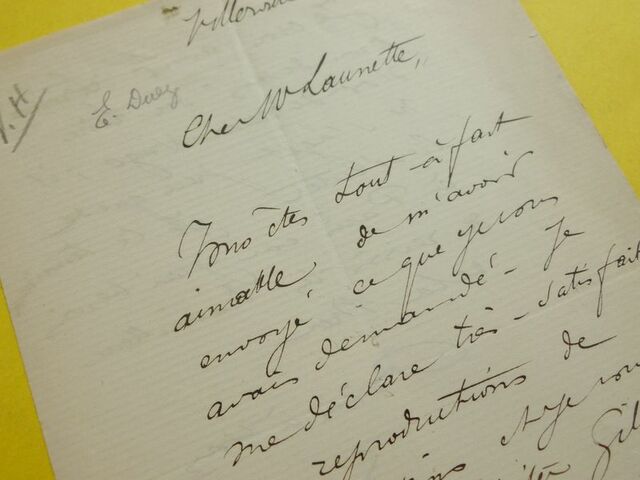 E. Duez
Cher Mr Launette,
Vous êtes tout-à-fait
aimable de m'avoir
envoyé ce que je vous
avais demandé - Je
me déclare très-satisfait
reproductions de
et je vous